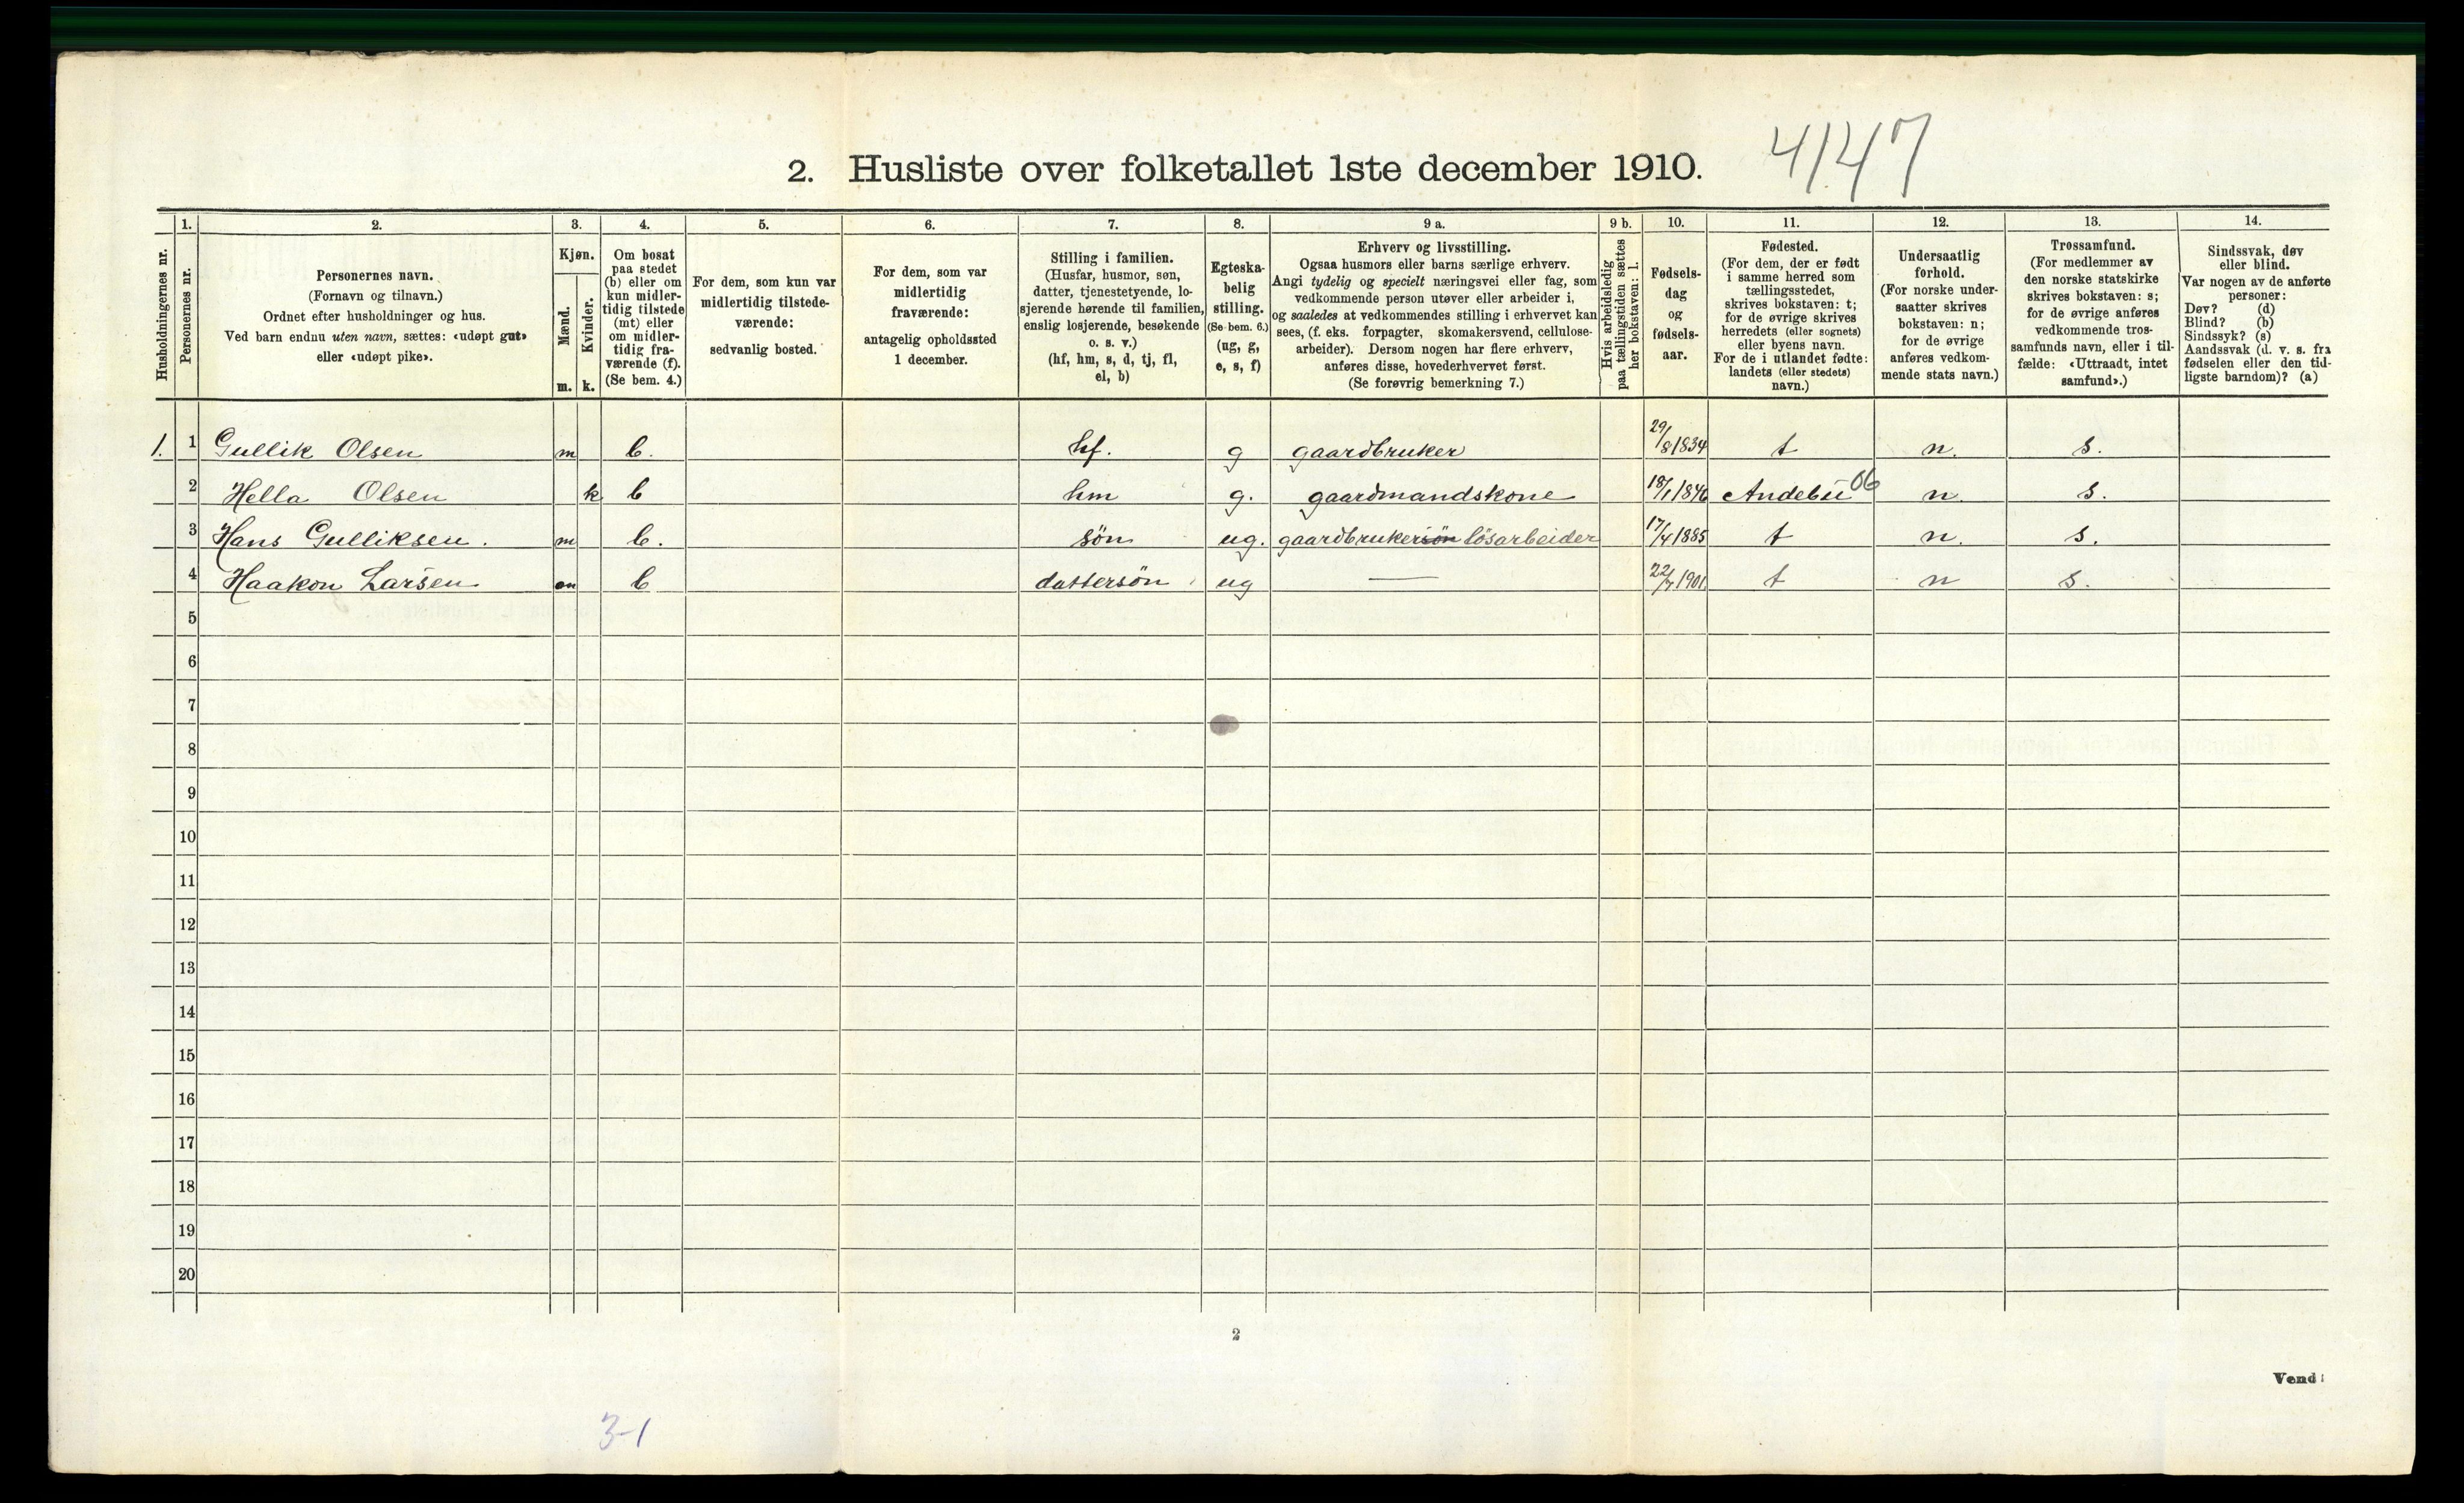 4147
2. Husliste over folketallet 1ste december 1910.
Husholdningernes nr.
1.
Personernes nr.
2.
Personernes navn.
(Fornavn og tilnavn.)
Ordnet efter husholdninger og hus.
Ved barn endnu uten navn, sættes: «udøpt gut»
eller «udøpt pike».
3.
Kjøn.
Mænd.
m.
Kvinder.
k.
4.
Om bosat
paa stedet
(b) eller om
kun midler-
tidig tilstede
(mt) eller
om midler-
tidig fra-
værende (f).
(Se bem. 4.)
5.
For dem, som kun var
midlertidig tilstede-
værende:
sedvanlig bosted.
6.
For dem, som var
midlertidig
fraværende:
antagelig opholdssted
1 december.
7.
Stilling i familien.
(Husfar, husmor, søn,
datter, tjenestetyende, lo-
sjerende hørende til familien,
enslig losjerende, besøkende
o. s. v.)
(hf, hm, s, d, tj, fl,
el, b)
8.
Egteska-
belig
stilling.
(Se bem. 6.)
(ug, g,
e, s, f)
9 a.
Erhverv og livsstilling.
Ogsaa husmors eller barns særlige erhverv.
Angi tydelig og specielt næringsvei eller fag, som
vedkommende person utøver eller arbeider i,
og saaledes at vedkommendes stilling i erhvervet kan
sees, (f. eks. forpagter, skomakersvend, cellulose-
arbeider). Dersom nogen har flere erhverv,
anføres disse, hovederhvervet først.
(Se forøvrig bemerkning 7.)
9 b.
Hvis arbeidsledig
paa tællingstiden sættes
her bokstaven: l.
10.
Fødsels-
dag
og
fødsels-
aar.
11.
Fødested.
(For dem, der er født
i samme herred som
tællingsstedet,
skrives bokstaven: t;
for de øvrige skrives
herredets (eller sognets)
eller byens navn.
For de i utlandet fødte:
landets (eller stedets)
navn.)
12.
Undersaatlig
forhold.
(For norske under-
saatter skrives
bokstaven: n;
for de øvrige
anføres vedkom-
mende stats navn.)
13.
Trossamfund.
(For medlemmer av
den norske statskirke
skrives bokstaven: s;
for de øvrige anføres
vedkommende tros-
samfunds navn, eller i til-
fælde: «Uttraadt, intet
samfund».)
14.
Sindssvak, døv
eller blind.
Var nogen av de anførte
personer:
Døv? (d)
Blind? (b)
Sindssyk? (s)
Aandssvak (d. v. s. fra
fødselen eller den tid-
ligste barndom)? (a)
1. 1 Gullik Olsen m b. hf. g gaardbruker 29/8 1834 t n. s.
2 Hella Olsen k b hm g. gaardmandskone 18/1 1846 Andebu 06 n. s.
3 Hans Gulliksen. m b. søn ug. gaardbrukersøn løsarbeider 17/4 1885 t n. s.
4 Haakon Larsen m b dattersøn ug — 22/7 1901 t n s.
5
6
7
8
9
10
11
12
13
14
15
16
17
18
19
20
2
Vend!
3-1